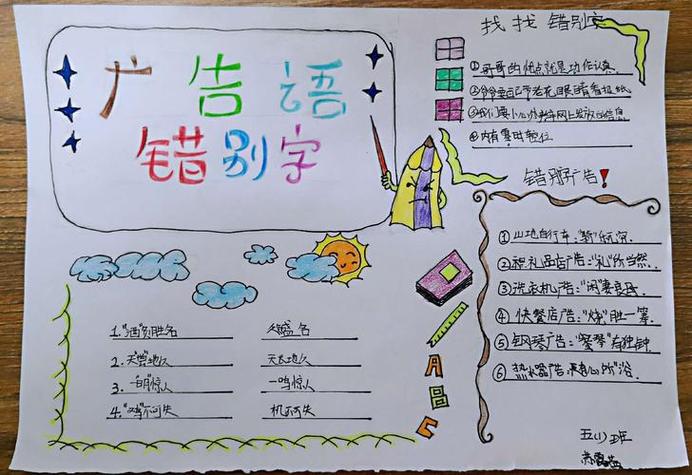 广告语
错别字
找找错别字
①哥哥的优点就是功作认真
②爷爷每已带老花眼镜看报纸
③我们要小心办来年网上发放的信息
④内有零时车位
错别字广告！
①山地自行车："骑"乐无穷
②视礼品店广告："礼"所当然
③洗衣机广告："闲"妻良母
④快餐店广告："烧"胜一筹
⑤钢琴广告："琴琴"有独钟
⑥热水器广告：随心所"浴
1."酒"负胜名
久盛名
2.天"曾"地久
天长地久
3.一"明"惊人
一鸣惊人
4."鸡"不可失
机不可失
A
B
C
五(1)班